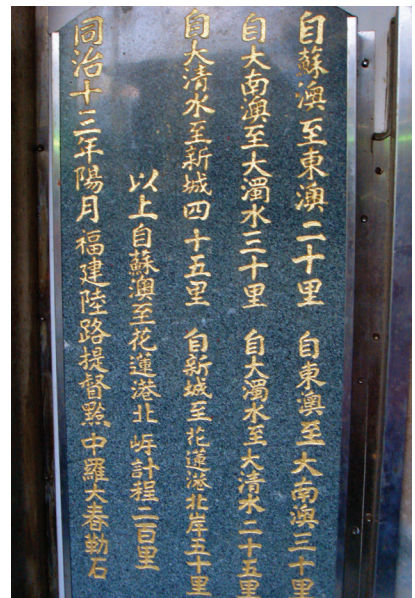 自蘇澳至東澳二十里　自東澳至大南澳三十里
自大南澳至大濁水三十里　自大濁水至大清水二十五里
自大清水至新城四十五里　自新城至花蓮港北岸五十里
以上自蘇澳至花蓮港北岸計程二百里
同治十三年陽月福建陸路提督黔中羅大春勒石